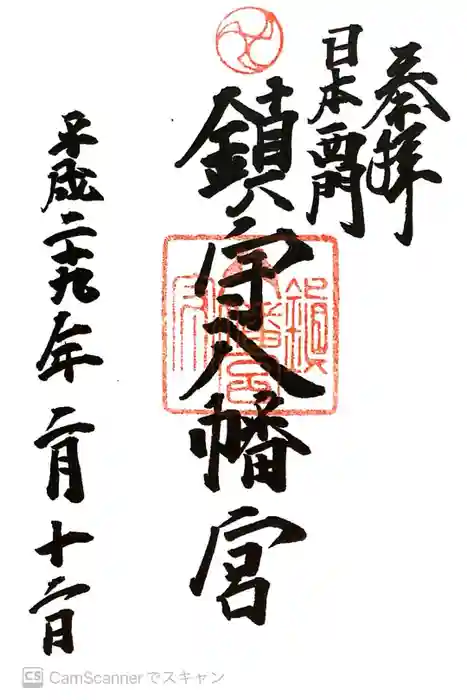 奉拝
日本西門
鎮守八幡宮
平成二十九年二月十二日
CS CamScannerでスキャン